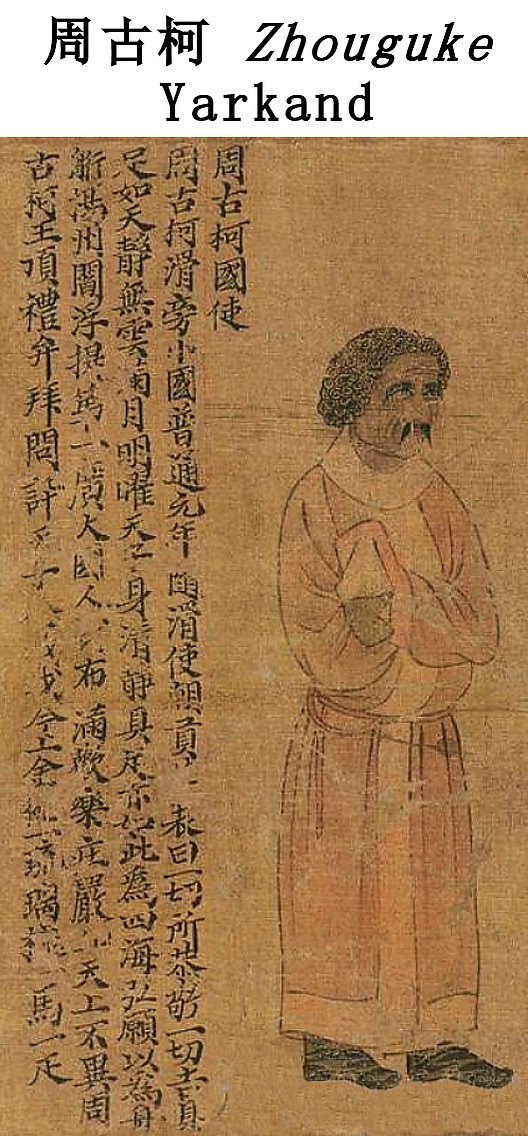 周古柯 Zhouguke
Yarkand
周古柯國使
周古柯滑旁小國普通元年隨滑使朝貢 表曰一切所恭敬一切吉具
足如天靜無雲滿月明曜天子身清靜具足亦如此為四海弘願以為舟
航揚州閻浮提第一廣大國人布滿歡樂莊嚴天上不異周
古柯王頂禮弁拜問訊天子今上金一琉璃一馬一疋